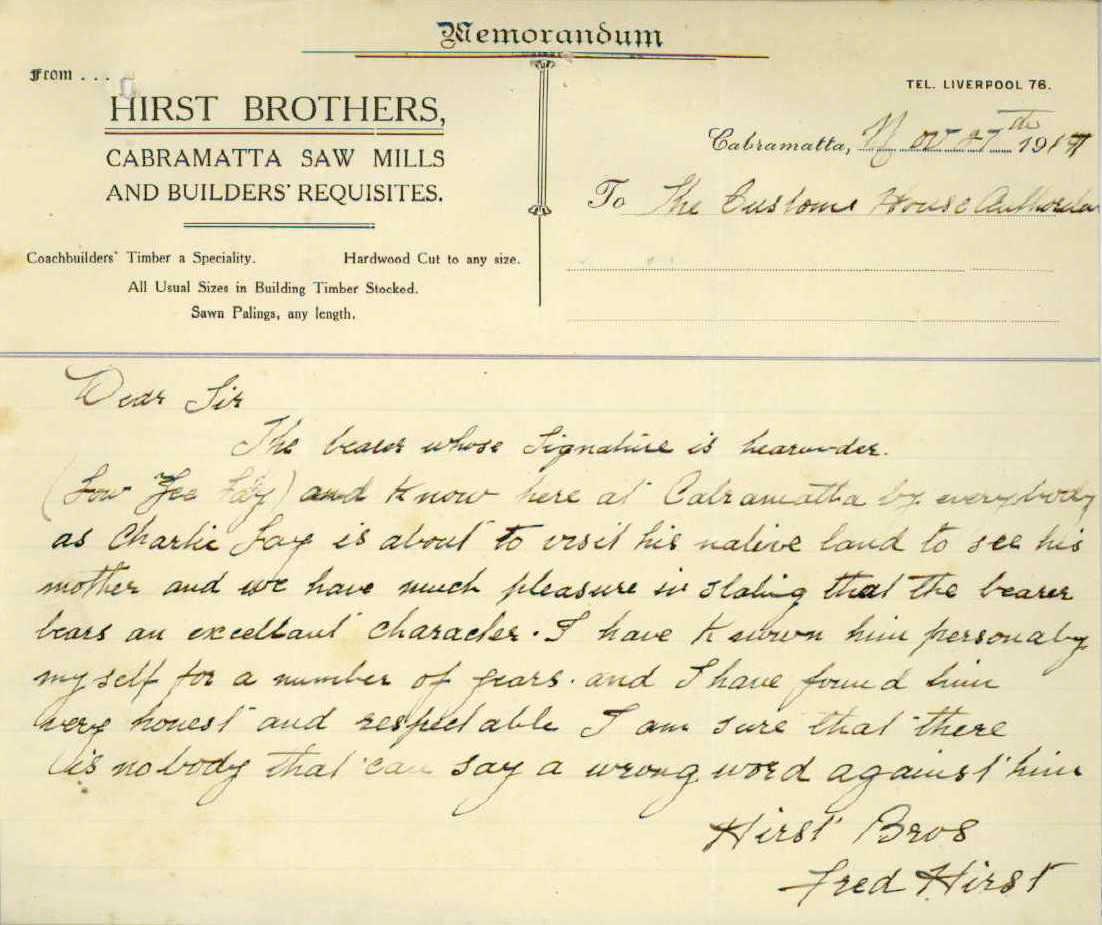 Memorandum
From ...
HIRST BROTHERS,
CABRAMATTA SAW MILLS
AND BUILDERS' REQUISITES.
Coachbuilders' Timber a Speciality. Hardwood Cut to any size.
All Usual Sizes in Building Timber Stocked.
Sawn Palings, any length.
TEL. LIVERPOOL 76.
Cabramatta, Nov 27th 191
To The Customs House
Dear Sir
The bearer whose Signature is hearunder.
(Low Yee ) and Know here at Cabramatta by everybody
as Charlie Fay is about to visit his native land to see his
mother and we have much pleasure in stating that the bearer
bears an excellant character. I have Known him personaly
myself for a number of years. and I have found him
very honest and respectable I am sure that there
is nobody that can say a wrong word against him
Hirst Bros
Fred Hirst